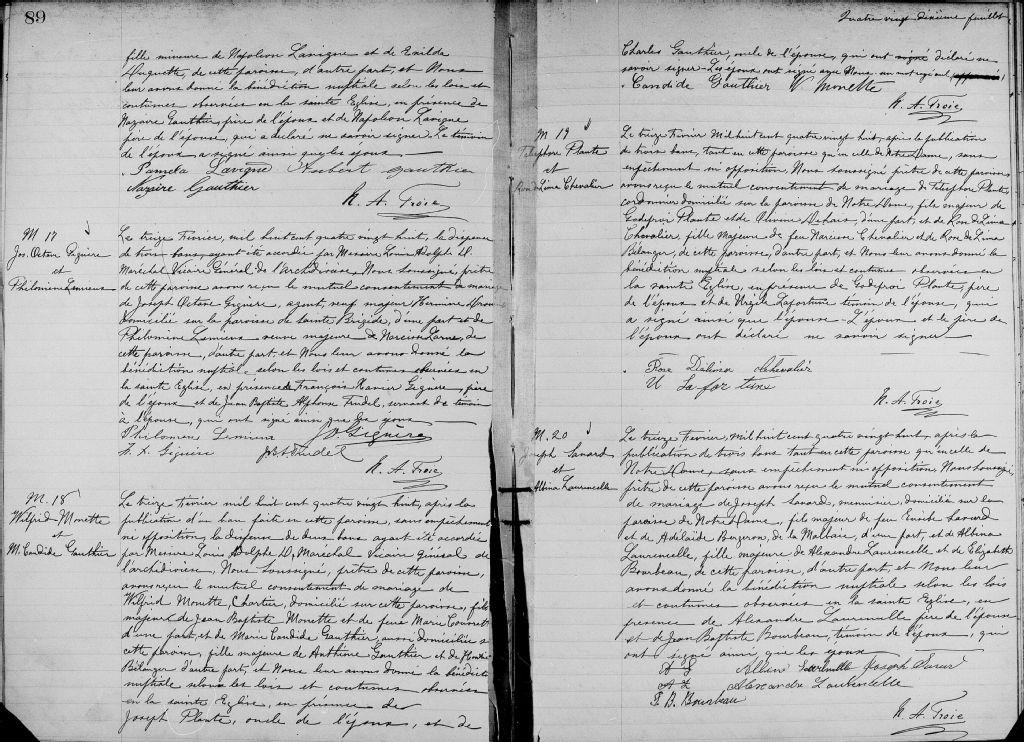 89
fille mineure de Napoléon Lavigne et de Exilda
Huguette, de cette paroisse, d'autre part, et Nous
leur avons donné la bénédiction nuptiale selon les lois et
coutumes observées en la sainte Eglise, en présence de
Nazaire Gauthier, père de l'époux et de Napoléon Lavigne
père de l'épouse, qui a déclaré ne savoir signer. Le témoin
de l'époux a signé ainsi que les époux
Pamela Lavigne Hubert Gauthier
Nazère Gauthier
N. A. Troie
M 17
Jos. Octave Giguère
et
Philomène Lemieux
Le treize Février, mil huit cent quatre vingt huit, la dispense
de trois bans, ayant été accordée par Messire Louis Adolphe D.
Maréchal Vicaire Général de l'Archidiocèse, Nous soussigné, prêtre
de cette paroisse avons reçu le mutuel consentement de mariage
de Joseph Octave Giguère, agent, veuf majeur Hermine
domicilié sur la paroisse de sainte Brigide, d'une part et de
Philomène Lemieux veuve majeure de Narcisse de
cette paroisse, d'autre part, et Nous leur avons donné la
bénédiction nuptiale selon les lois et coutumes observées en
la sainte Eglise, en présence de François Xavier Giguère, père
de l'époux et de Jean Baptiste Alphonse Trudel, servant de témoin
à l'épouse, qui ont signé ainsi que les époux
Philomène Lemieux J O Giguère
F. X. Giguère J B A Trudel
N. A. Troie
M. 18
Wilfrid Monette
et
M. Candide Gauthier
Le treize Février mil huit cent quatre vingt huit, après la
publication d'un ban faite en cette paroisse, sans empêchement
ni opposition, la dispense de deux bans ayant été accordée
par Messire Louis Adolphe D. Maréchal vicaire général de
l'archidiocèse, Nous soussigné, prêtre de cette paroisse,
avons reçu le mutuel consentement de mariage de
Wilfrid Monette, Chartier, domicilié sur cette paroisse, fils
majeur de Jean Baptiste Monette et de feue Marie
d'une part, et de Marie Candide Gauthier, aussi domiciliée
cette paroisse, fille majeure de Anthime Gauthier et de
Bélanger d'autre part, et Nous leur avons donné la bénédiction
nuptiale selon les lois et coutumes observées
en la sainte Eglise, en présence de
Joseph Plante, oncle de l'époux, et de
Quatre vingt dixième feuillet
Charles Gauthier, oncle de l'épouse, qui ont signé déclaré ne
savoir signer. Les époux ont signé avec Nous. un mot rayé nul,
Candide Gauthier W. Monette
N. A. Troie
M 19
Téléphore Plante
et
Rose de Lima Chevalier
Le treize Février Mil huit cent quatre vingt huit, après la publication
de trois bans, tant en cette paroisse qu'en celle de Notre Dame, sans
empêchement ni opposition, Nous soussigné prêtre de cette paroisse
avons reçu le mutuel consentement de mariage de Téléphore Plante,
cordonnier domicilié sur la paroisse de Notre Dame, fils majeur de
Godefroi Plante et de Olivine d'une part, et de Rose de Lima
Chevalier, fille majeure de feu Narcisse Chevalier et de Rose de Lima
Bélanger, de cette paroisse, d'autre part, et Nous leur avons donné la
bénédiction nuptiale selon les lois et coutumes observées en
la sainte Eglise, en présence de Godefroi Plante, père
de l'époux et de Urgèle Lafortune témoin de l'épouse, qui
a signé ainsi que l'épouse. L'époux et le père de
l'époux ont déclaré ne savoir signer
Rose Dalima Chevalier
U Lafortune
N. A. Troie
M. 20
Joseph Savard
et
Albina Laurencelle
Le treize Février, Mil huit cent quatre vingt huit, après la
publication de trois bans tant en cette paroisse qu'en celle de
Notre Dame, sans empêchement ni opposition, Nous soussigné,
prêtre de cette paroisse avons reçu le mutuel consentement
de mariage de Joseph Savard, menuisier, domicilié sur la
paroisse de Notre Dame, fils majeur de feu Savard
et de Adelaide Bergeron, de la Malbaie, d'une part, et de Albina
Laurencelle, fille majeure de Alexandre Laurencelle et de Elizabeth
Bourbeau, de cette paroisse, d'autre part, et Nous leur
avons donné la bénédiction nuptiale selon les lois
et coutumes observées en la sainte Eglise, en
présence de Alexandre Laurencelle père de l'épouse
et de Jean Baptiste Bourbeau, témoin de l'époux, qui
ont signé ainsi que les époux
Albina Laurencelle Joseph Savard
A L Alexandre Laurencelle
J. B. Bourbeau
N. A. Troie